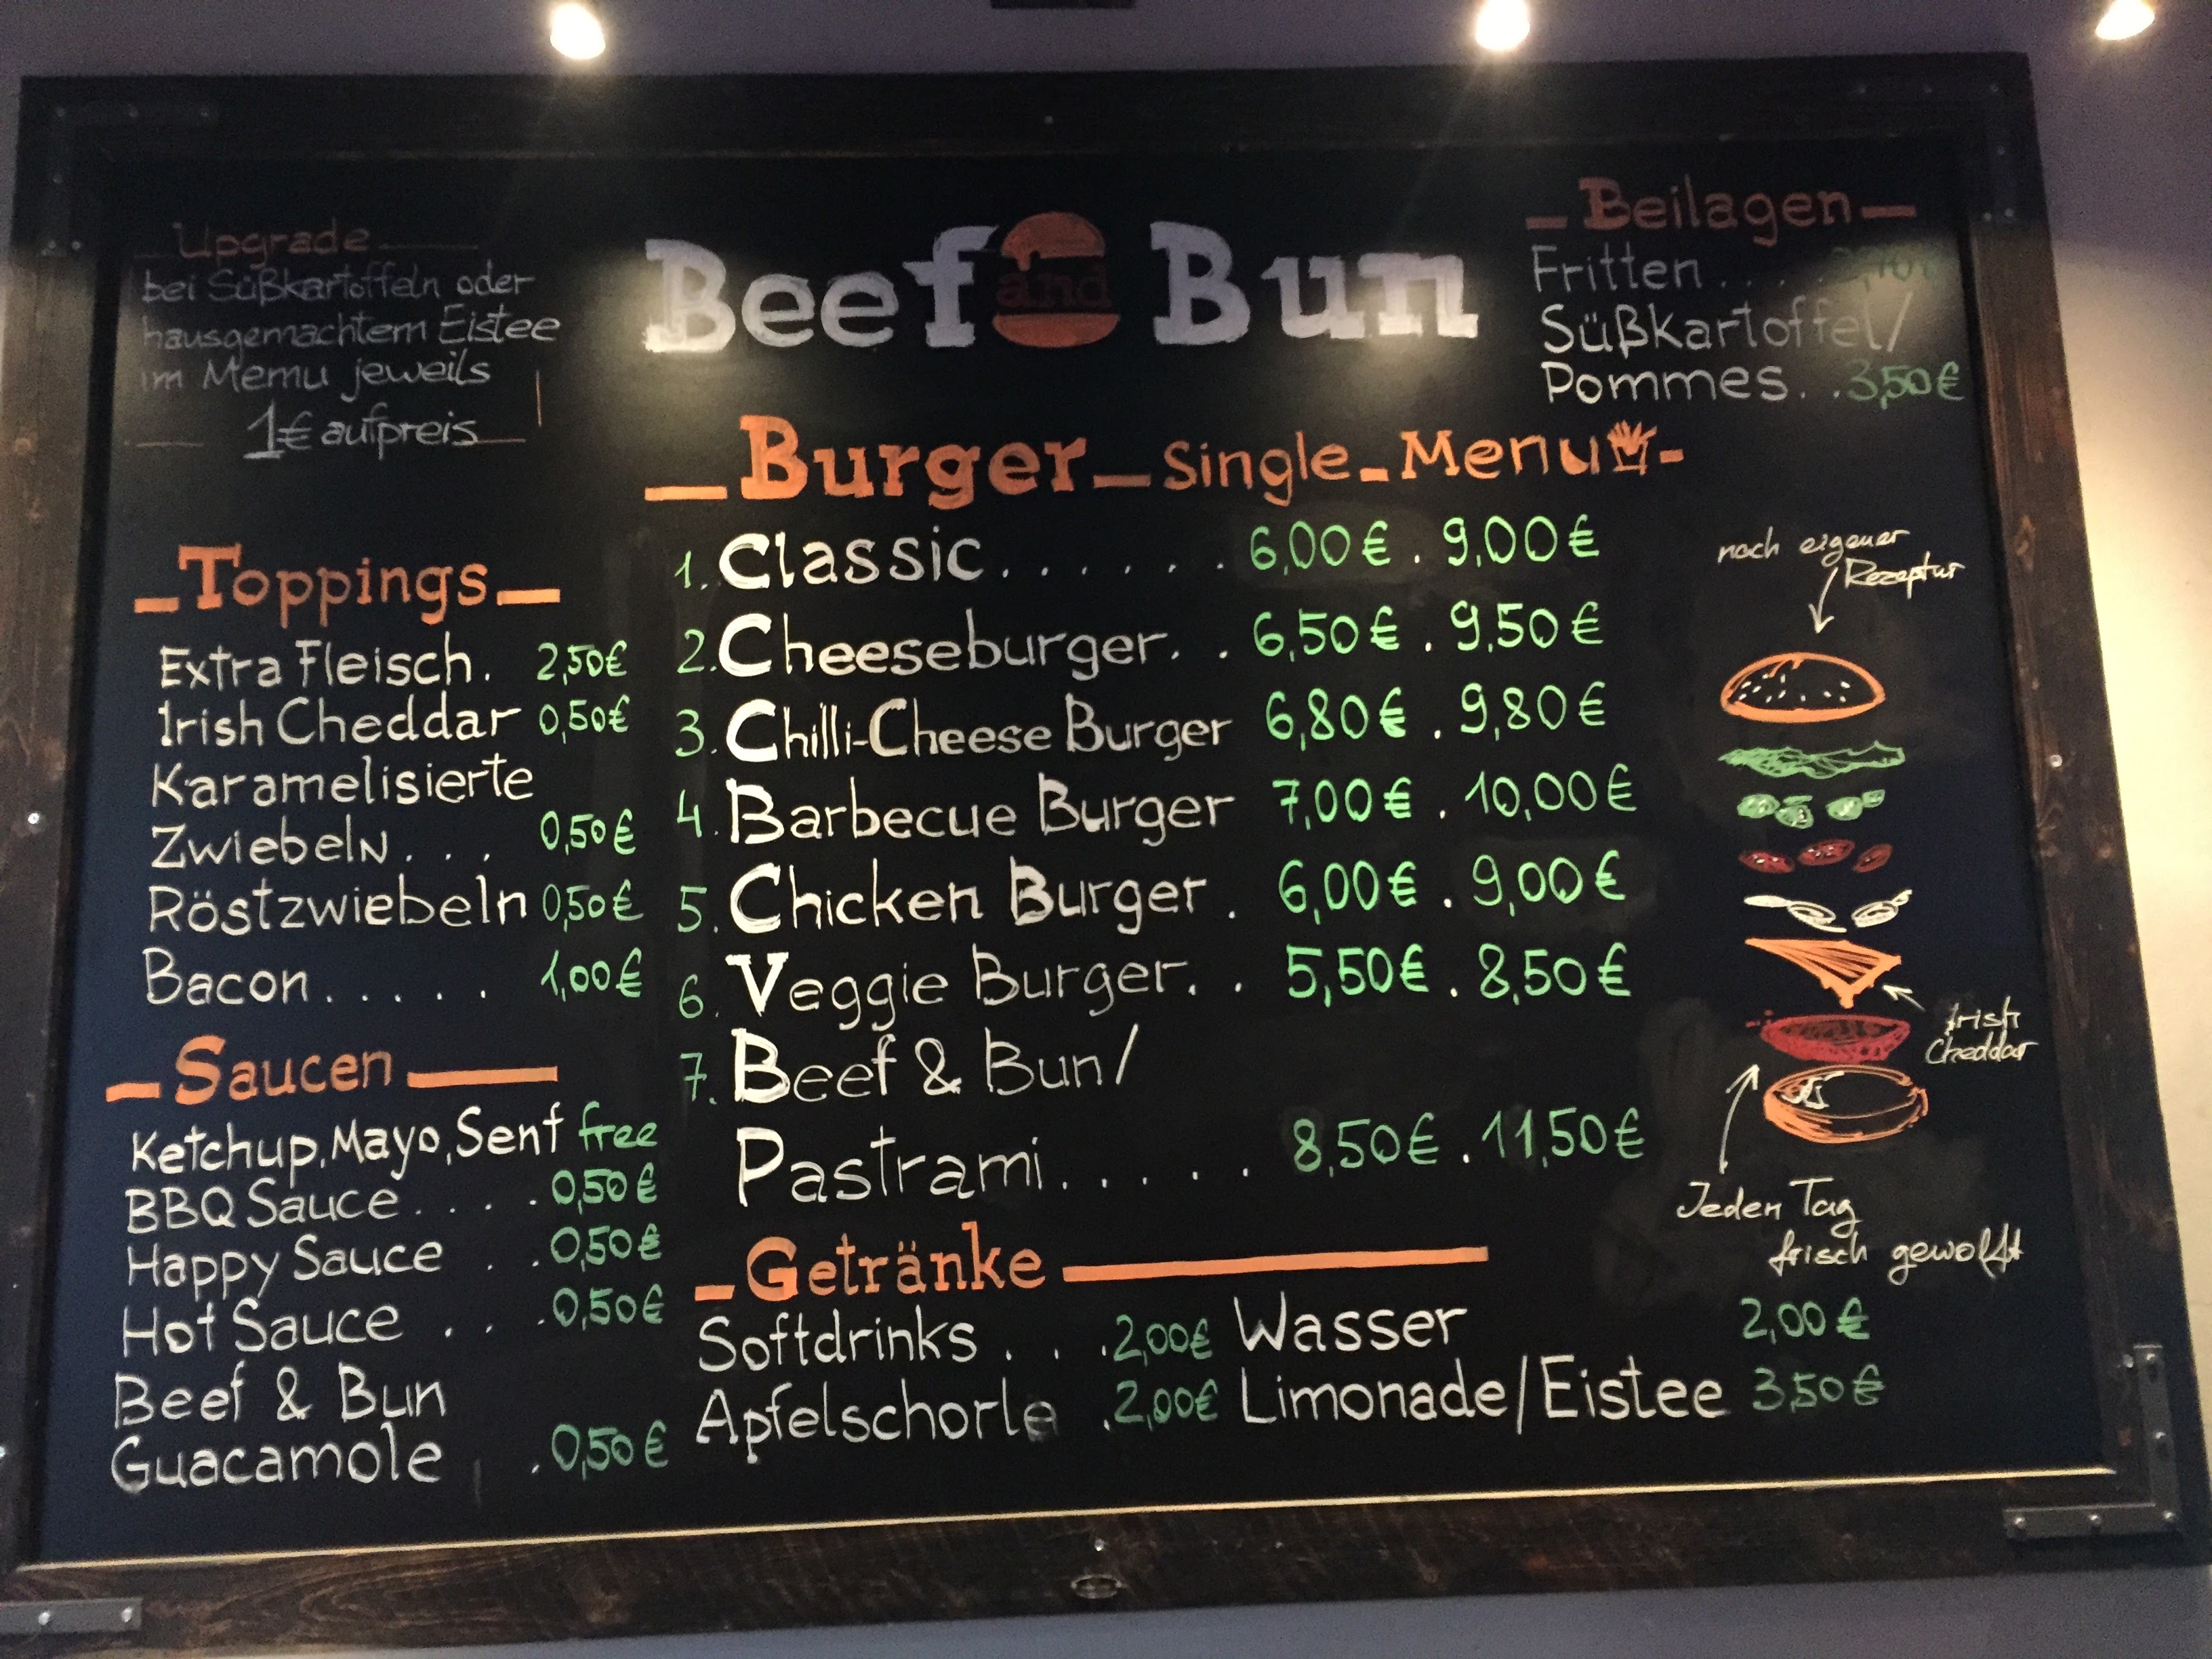 Upgrade
bei Süßkartoffeln oder
hausgemachtem Eistee
im Memu jeweils
1€ aufpreis
Beef and Bun
Beilagen
Fritten . . . .
Süßkartoffel/
Pommes. . 3,50€
Toppings
Extra Fleisch. 2,50€
Irish Cheddar 0,50€
Karamelisierte
Zwiebeln . . . 0,50€
Röstzwiebeln 0,50€
Bacon . . . . . 1,00€
Saucen
Ketchup, Mayo, Senf free
BBQ Sauce . . . . 0,50€
Happy Sauce . . 0,50€
Hot Sauce . . . 0,50€
Beef & Bun
Guacamole . 0,50€
Burger Single Menu
1. Classic . . . . . . 6,00€ . 9,00€
2. Cheeseburger. . 6,50€ . 9,50€
3. Chilli-Cheese Burger 6,80€ . 9,80€
4. Barbecue Burger 7,00€ . 10,00€
5. Chicken Burger . 6,00€ . 9,00€
6. Veggie Burger. . 5,50€ . 8,50€
7. Beef & Bun/
Pastrami . . . . . 8,50€ . 11,50€
nach eigener
Rezeptur
Irish
Cheddar
Jeden Tag
frisch gewolft
Getränke
Softdrinks . . . 2,00€ Wasser 2,00€
Apfelschorle . 2,00€ Limonade/Eistee 3,50€